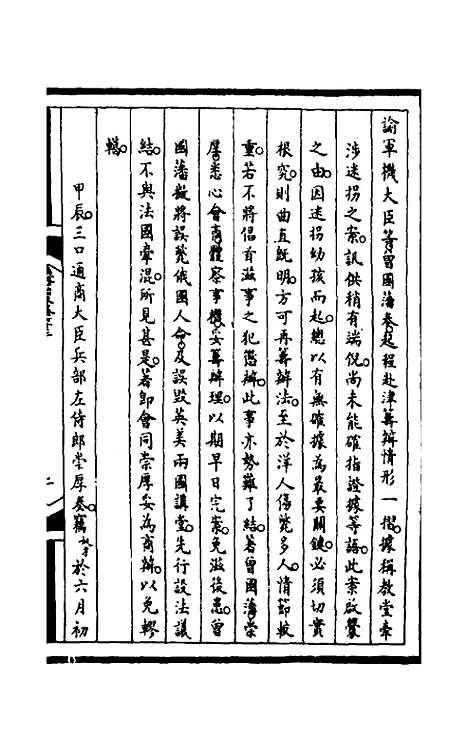 諭軍機大臣等曾國藩奏起程赴津籌辦情形一摺據稱教堂牽
涉迷拐之案訊供稍有端倪尚未能確指證據等語此案啟釁
之由因迷拐幼孩而起總以有無確據為最要關鍵必須切實
根究則曲直既明方可再籌辦法至於洋人傷斃多人情節較
重若不將倡首滋事之犯懲辦此事亦勢難了結著曾國藩崇
厚悉心會商體察事機妥籌辦理以期早日完案免滋後患曾
國藩擬將誤斃俄國人命及誤毀英美兩國講堂先行設法議
結不與法國牽混所見甚是著即會同崇厚妥為商辦以免轇
轕
甲辰三口通商大臣兵部左侍郎崇厚奏竊奴才於六月初
二